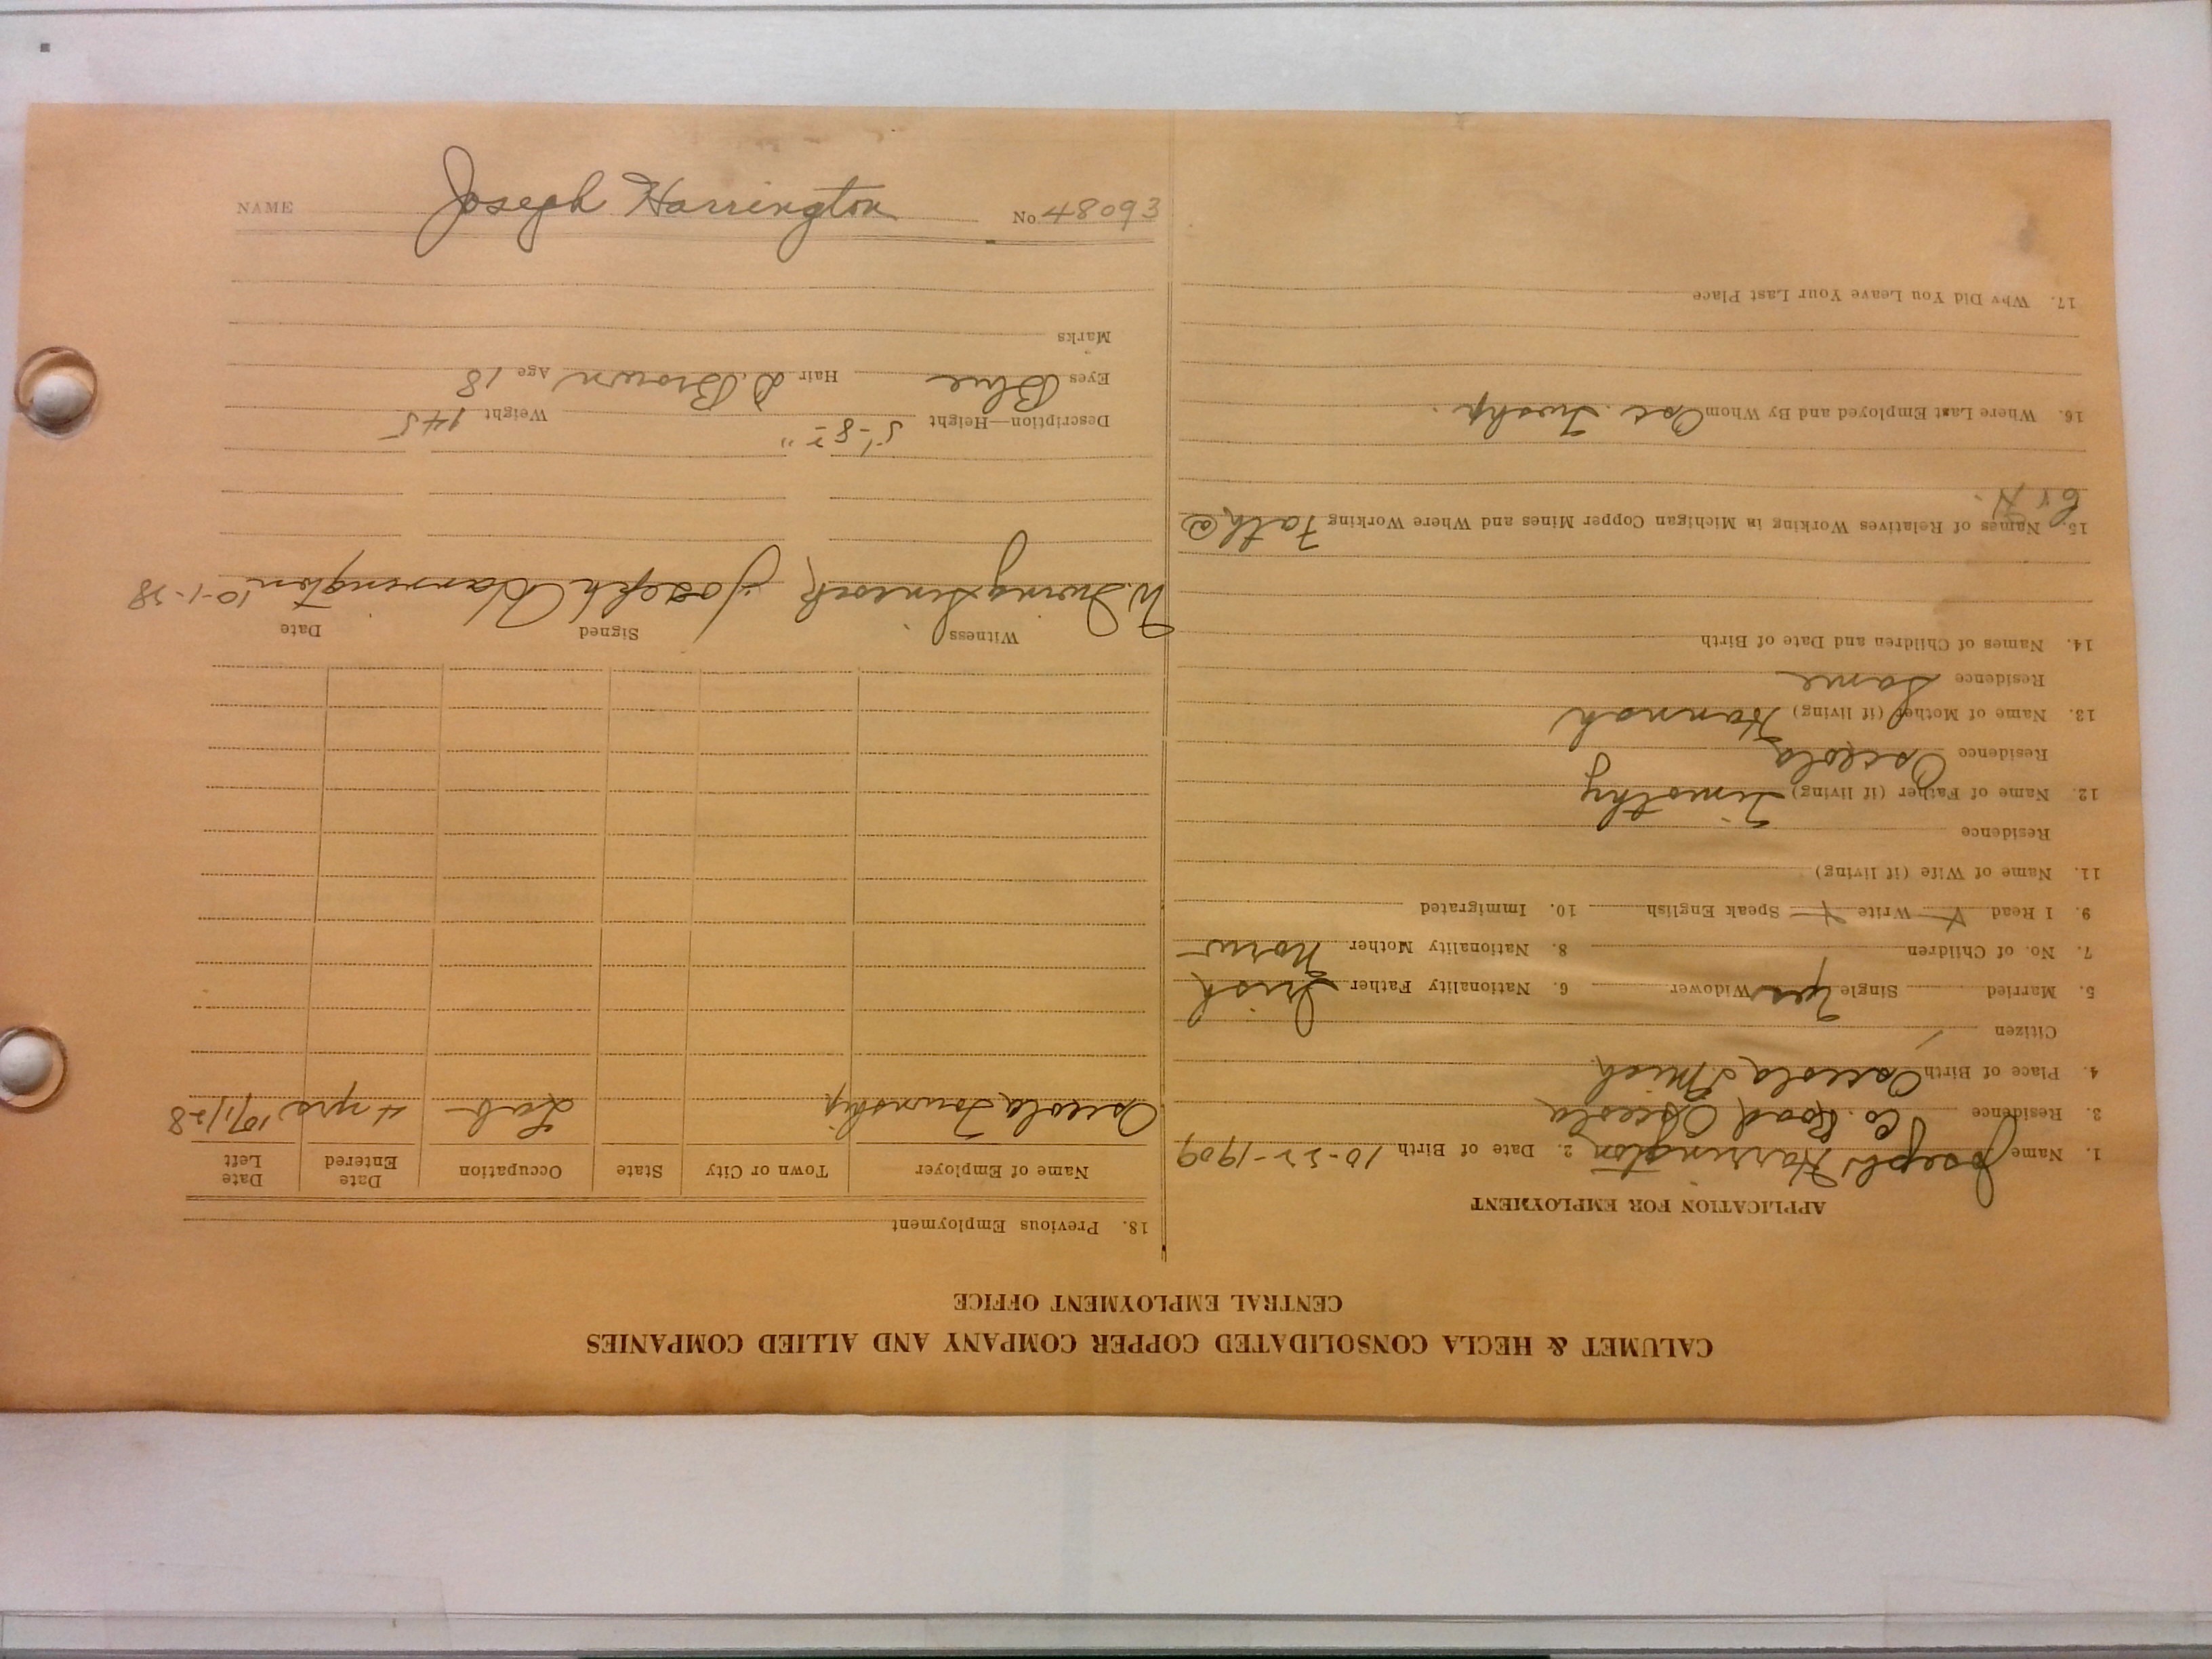 CALUMET & HECLA CONSOLIDATED COPPER COMPANY AND ALLIED COMPANIES
CENTRAL EMPLOYMENT OFFICE
APPLICATION FOR EMPLOYMENT
1. Name Joseph Harrington 2. Date of Birth 10-22-1909
3. Residence Co. Road Osceola
4. Place of Birth Osceola Mich
Citizen
5. Married Single Yes Widower 6. Nationality Father Irish
7. No. of Children 8. Nationality Mother Norw
9. I Read X Write X Speak English 10. Immigrated
11. Name of Wife (if living)
Residence
12. Name of Father (if living) Timothy
Residence Osceola
13. Name of Mother (if living) Hannah
Residence Same
14. Names of Children and Date of Birth
15. Names of Relatives Working in Michigan Copper Mines and Where Working Fath @
C & H.
16. Where Last Employed and By Whom Osc. Twshp.
17. Why Did You Leave Your Last Place
18. Previous Employment
Name of Employer Town or City State Occupation Date Entered Date Left
Osceola Township Lab 4 yrs 10/1/28
Witness Signed Date
W. Irving Joseph Harrington 10-1-28
Description—Height 5'-8 Weight 145
Eyes Blue Hair D. Brown Age 18
Marks
NAME Joseph Harrington No 48093